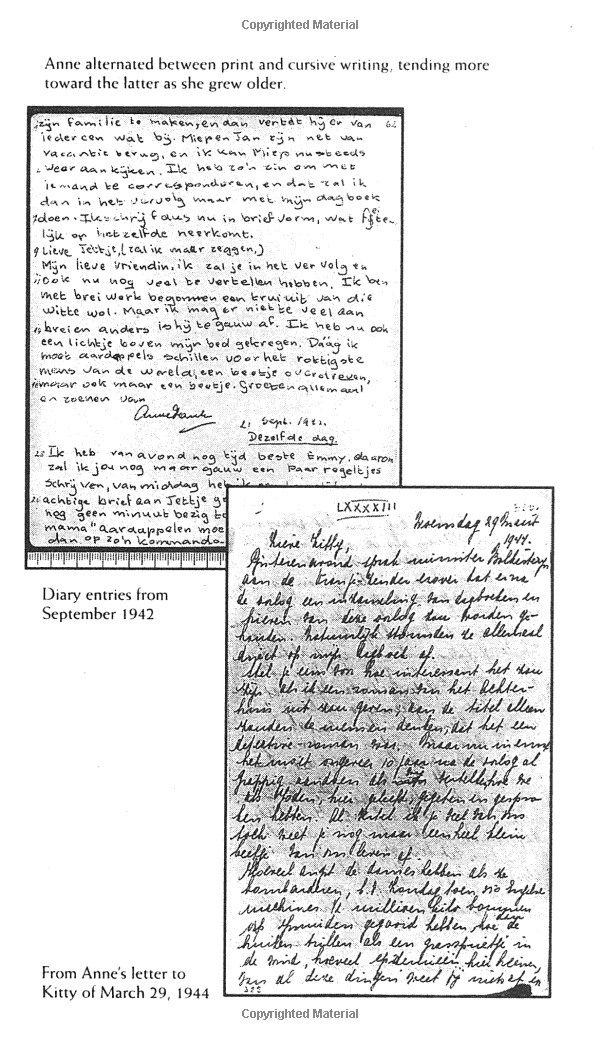 Copyrighted Material
Anne alternated between print and cursive writing, tending more
toward the latter as she grew older.
zijn familie te maken, en dan vertelt hij er van 62
iedereen wat bij. Miep en Jan zijn net van
vacantie terug, en ik kan Miep nu steeds
weer aankijken. Ik heb zo'n zin om met
iemand te corresponderen, en dat zal ik
dan in het vervolg maar met mijn dagboek
doen. Ik schrijf dus nu in brief vorm, wat feite-
lijk op hetzelfde neerkomt.
Lieve Jettje, (zal ik maar zeggen,)
Mijn lieve vriendin, ik zal je in het vervolg en
ook nu nog veel te vertellen hebben. Ik ben
met breiwerk begonnen een trui uit van die
witte wol. Maar ik mag er niet te veel aan
breien anders is hij te gauw af. Ik heb nu ook
een lichtje boven mijn bed gekregen. Dáág ik
moet aardappels schillen voor het rottigste
mens van de wereld, een beetje overdreven,
maar ook maar een beetje. Groeten allemaal
en zoenen van
Anne Frank
21 Sept. 1942.
Dezelfde dag.
Ik heb van avond nog tijd beste Emmy, daarom
zal ik jou nog maar gauw een paar regeltjes
Schrijven, van middag heb ik
achtige brief aan Jettje ge
nog geen minuut bezig to
mama" aardappelen moe
dan op zo'n kommando-
LXXXXIII
Woensdag 29 Maart
1944.
Lieve Kitty,
Gisterenavond sprak minister Bolkesteyn
aan de Oranje-zender erover dat er na
de oorlog een inzameling van dagboeken en
brieven van deze oorlog zou worden ge-
houden. Natuurlijk stormden ze allemaal
direct op mijn dagboek af.
Stel je eens voor hoe interessant het zou
zijn als ik een roman van het Achter-
huis uit zou geven; aan de titel alleen
zouden de mensen denken, dat het een
detective-roman was. Maar nu in ernst
het moet ongeveer 10 jaar na de oorlog al
grappig aandoen als wij vertellen hoe we
als Joden, hier geleefd, gegeten en gespro-
ken hebben. Al vertel ik je veel van ons
toch weet je nog maar een heel klein
beetje van ons leven af.
Hoeveel angst de dames hebben als ze
bombarderen, b.v. Zondag toen 350 Engelse
machines ½ millioen kilo bommen
op IJmuiden gegooid hebben, hoe dan de
huizen trillen als een grassprietje in
de wind, hoeveel epidemieën hier heersen,
van al deze dingen weet jij niets af en
Diary entries from
September 1942
From Anne's letter to
Kitty of March 29, 1944
Copyrighted Material